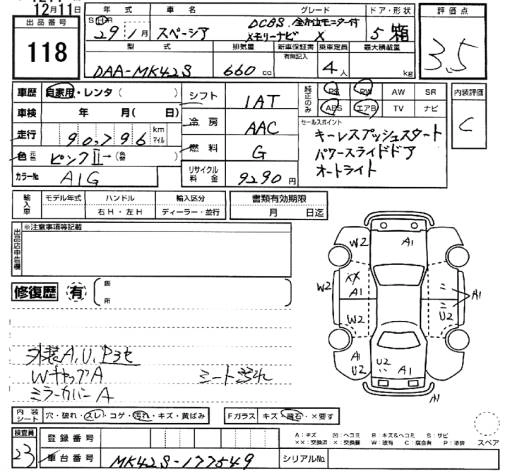 12月11日
出品番号
118
年式 車名 グレード ドア・形状
29/1月 スペーシア DCBS、全方位モニター付
メモリーナビ X 5 箱
型式 排気量 新車保証書 乗車定員 最大積載量
有無記入
DAA-MK42S 660 cc 4人 kg
評価点
3.5
車歴 自家用・レンタ（ ）
車検 年 月（ 日）
走行 90,796 km マイル
色 元色 ピンクII→（替色 ）
カラーNo A1G
シフト 1AT
冷房 AAC
燃料 G
リサイクル料金 9290円
純正のみ PS PW AW SR
ABS エアB TV ナビ
内装評価
C
セールスポイント
キーレスプッシュスタート
パワースライドドア
オートライト
輸入車 モデル年式 ハンドル 輸入区分
右H・左H ディーラー・並行
書類有効期限
月 日迄
※注意事項等記載
修復歴 有
箇所
外装A、U、Pヨセ
WキャップA
ミラーカバーA
W2 A1
W2 XX A1 A1
W2 U2
A1 U2 U2 A1
内装シート 穴・破れ・スレ・コゲ・汚れ・キズ・黄ばみ
Fガラス キズ・飛石・×要す
検査員
23
登録番号
車台番号 MK42S-177549 シリアルNo.
A：キズ U：ヘコミ B：キズ&ヘコミ S：サビ
スペア